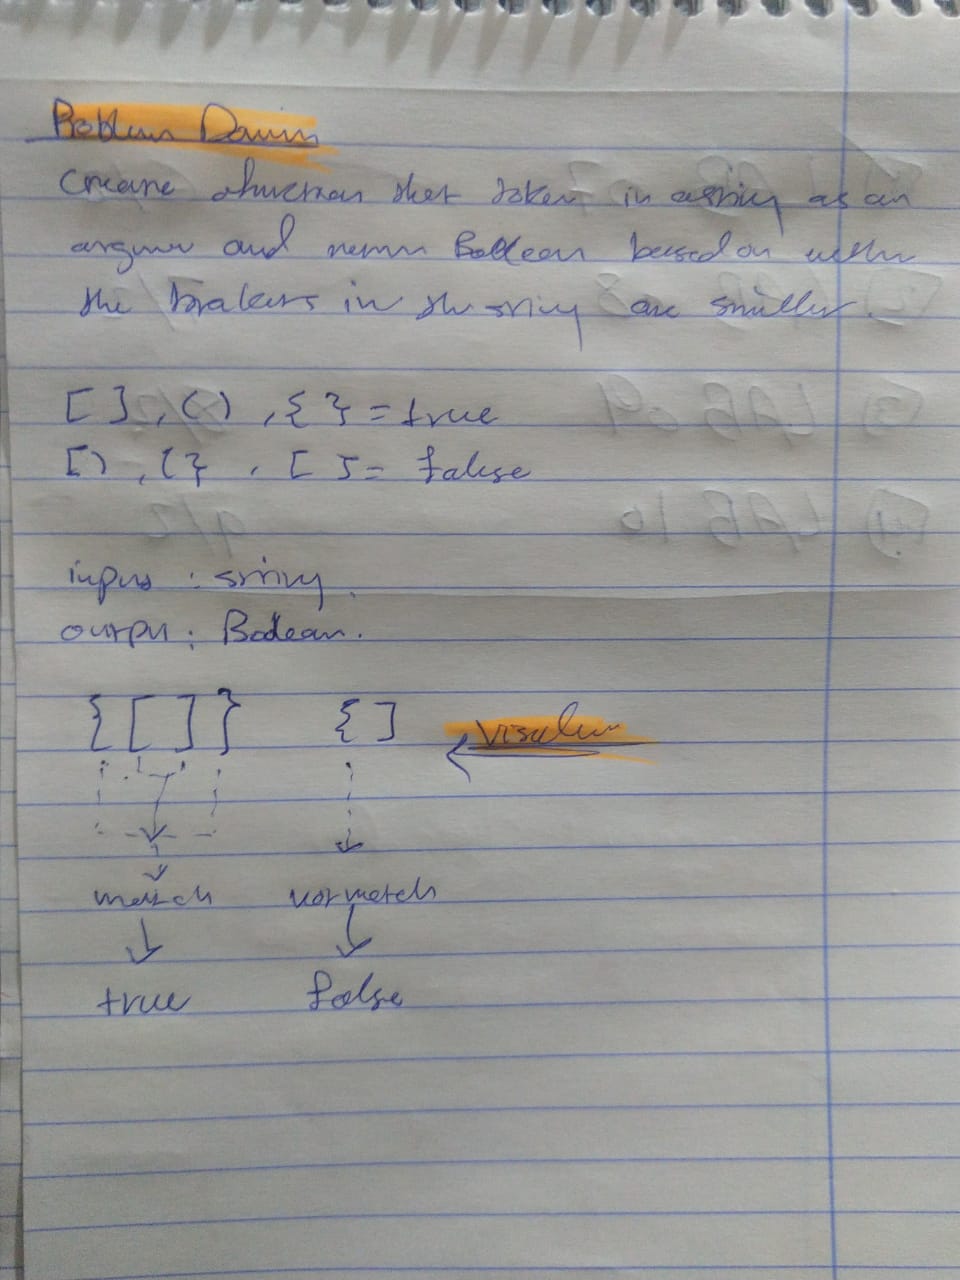 Problem Domain
Create a function that takes in a string as an
argument and return Boolean based on wether
the brakets in the string are similler.
[ ] , ( ) , { } = true
[ ) , ( } , [ } = false
input : string
output : Boolean.
{ [ ] } { ] visulen
match not match
true false